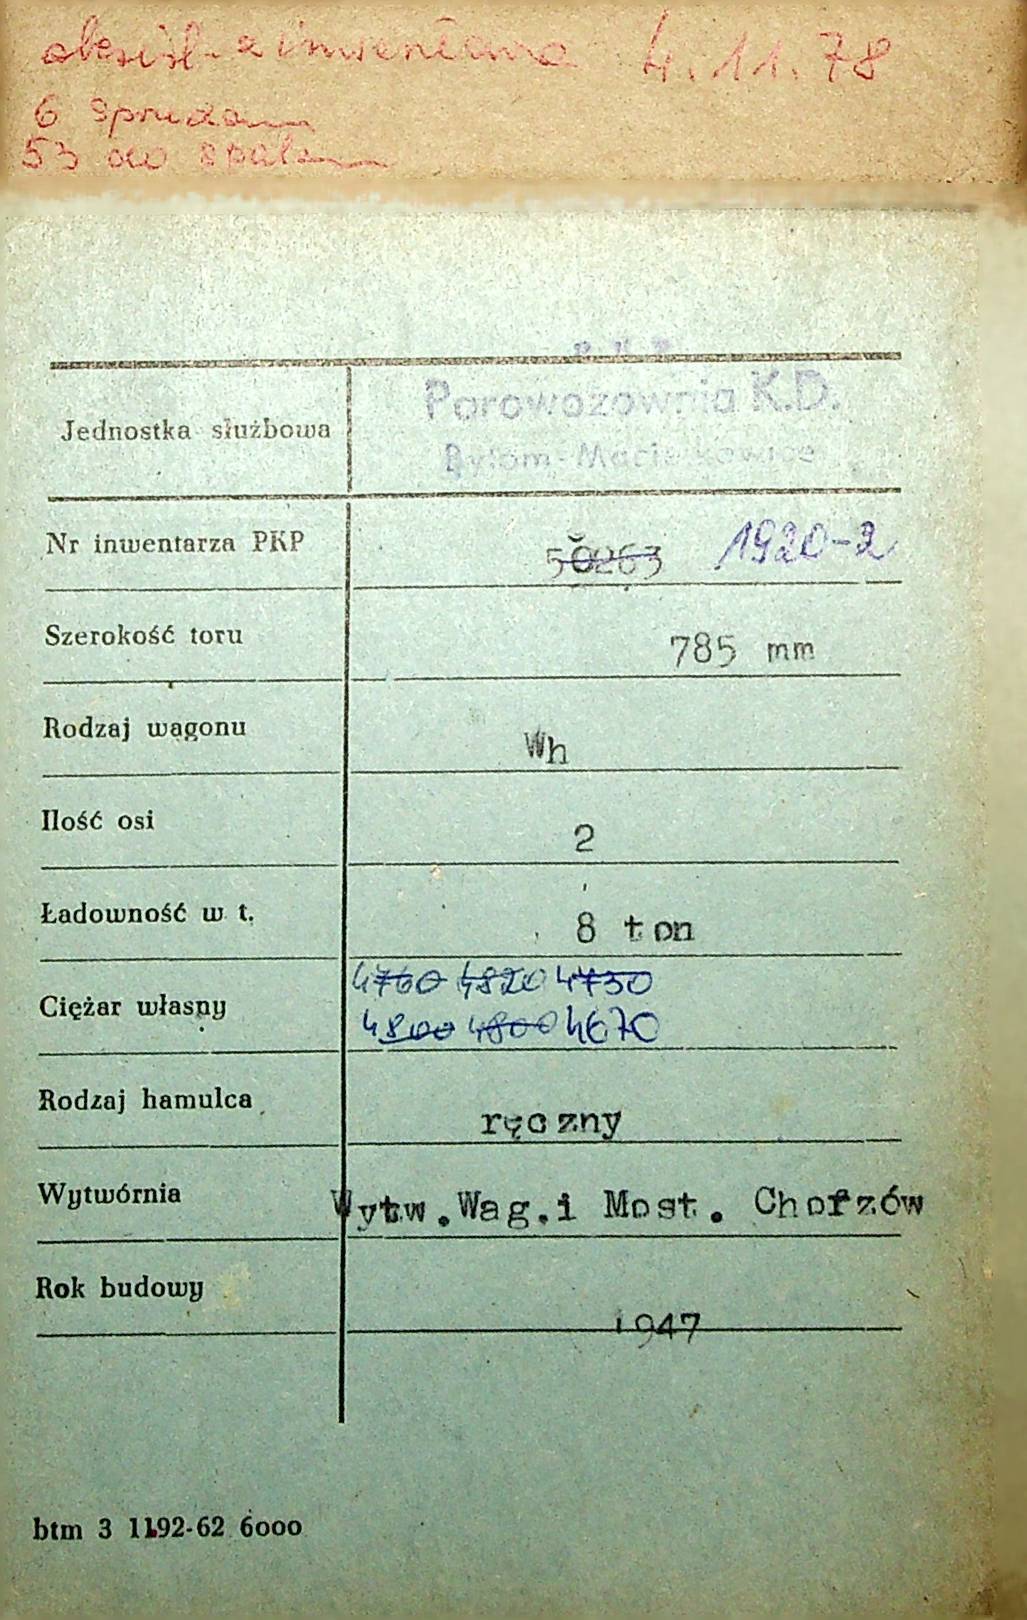 4.11.78
6
53 do
P K P
Parowozownia K.D.
Bytom-Maciejkowice
Jednostka służbowa
Nr inwentarza PKP 50263 1920-2
Szerokość toru 785 mm
Rodzaj wagonu Wh
Ilość osi 2
Ładowność w t. 8 ton
Ciężar własny 4760 4820 4730
4800 4800 4670
Rodzaj hamulca ręczny
Wytwórnia Wytw.Wag.i Most. Chorzów
Rok budowy 1947
btm 3 1192-62 6000